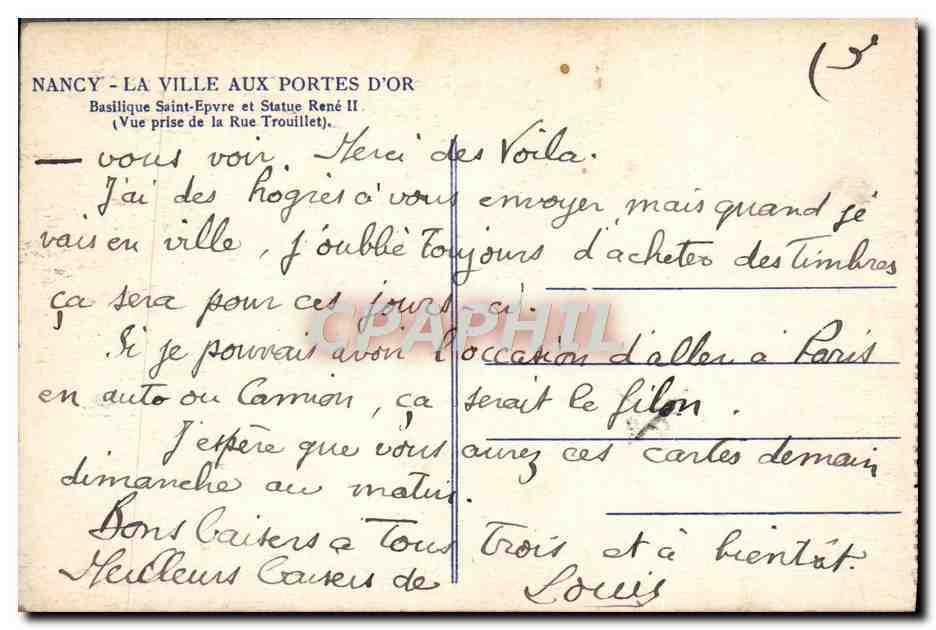 (3
NANCY - LA VILLE AUX PORTES D'OR
Basilique Saint-Epvre et Statue René II
(Vue prise de la Rue Trouillet).
— vous voir. Merci des Voila.
J'ai des hogries à vous envoyer, mais quand je
vais en ville, j'oublie toujours d'acheter des timbres
ça sera pour ces jours-ci.
Si je pouvais avoir l'occasion d'aller à Paris
en auto ou Camion, ça serait le filon.
J'espère que vous aurez ces cartes demain
dimanche au matin.
Bons baisers a Tous trois et à bientôt.
Meilleurs baisers de Louis
CPAPHIL